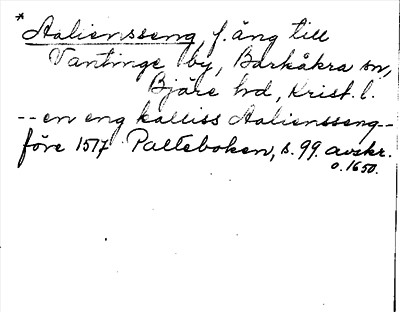 * Aaliensseng, f. äng till
Vantinge by, Barkåkra sn,
Bjäre hd, Krist. l.
-- en eng kalliss Aaliensseng --
före 1517 Palteboken, s. 99. avskr.
o. 1650.